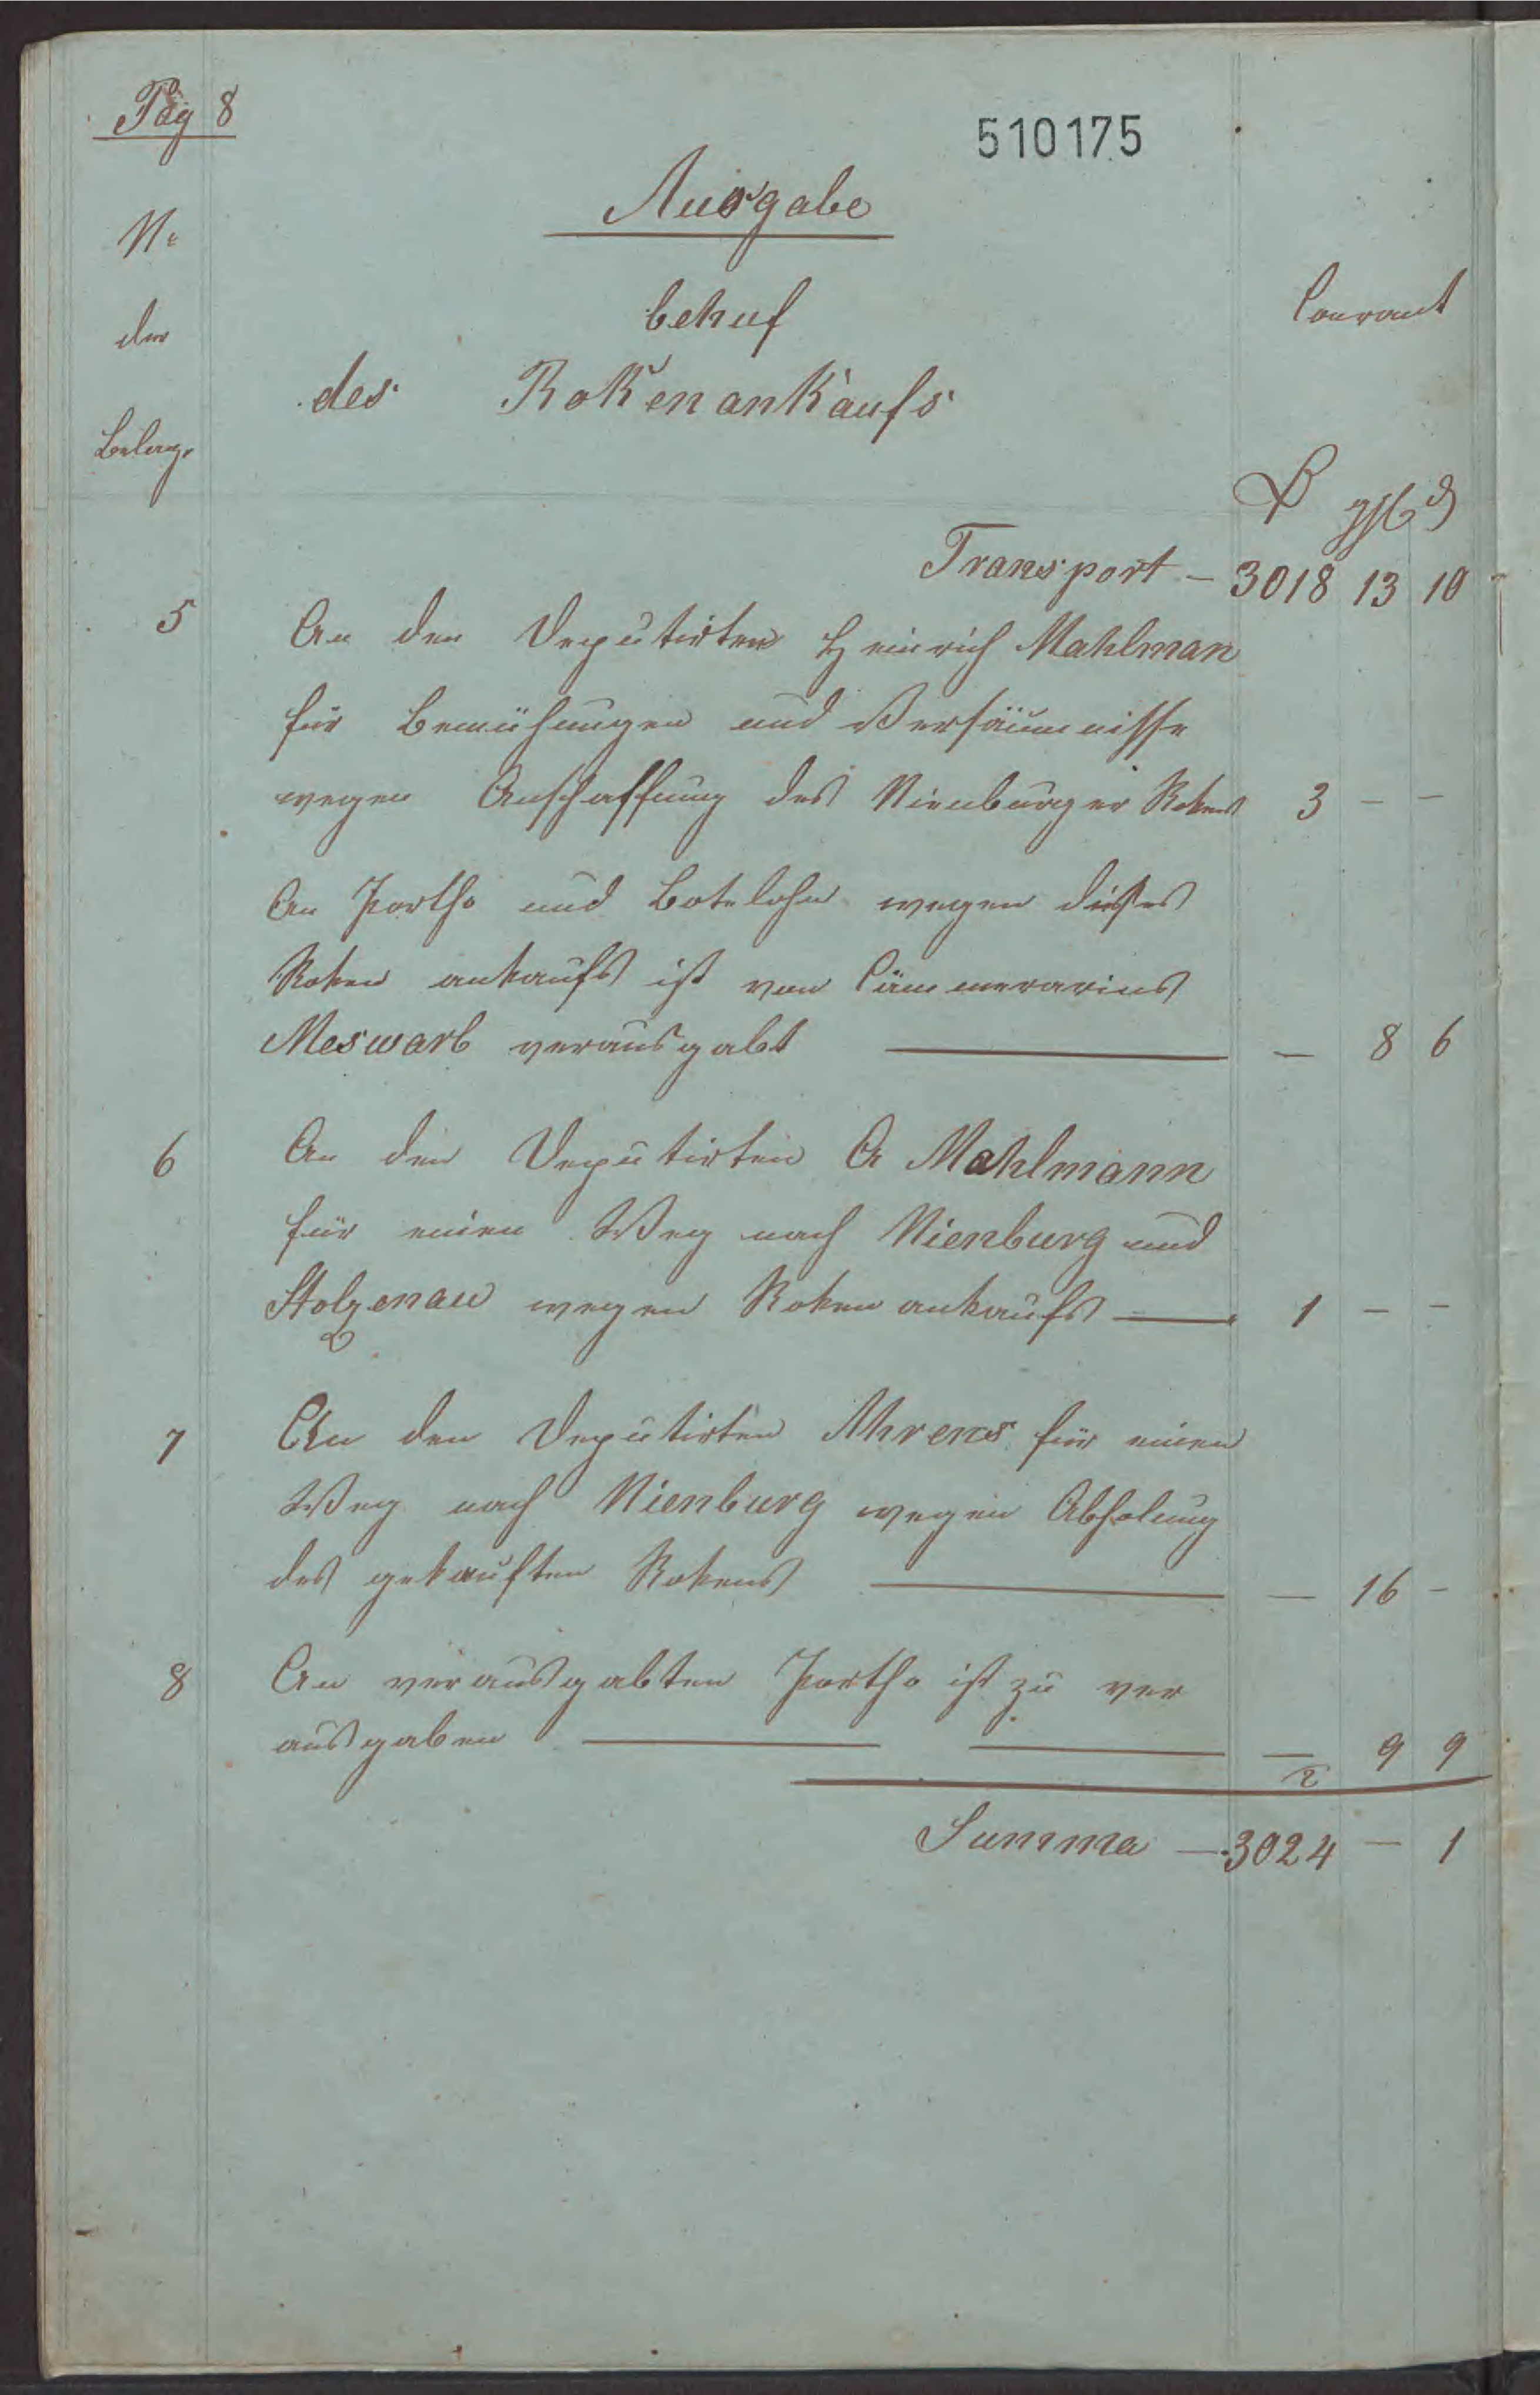 Pag 8
510175
Ausgabe
No
behuf
Courant
der
des Rokenankaufs
Belege
rthl ggl d
Transport - 3018 13 10
5 An den Deputirten Heinrich Mahlman
für Bemühungen und Versäumnisse
wegen Anschaffung des Nienburger Rokens 3 - -
An Portho und Botelohn wegen dieses
Roken ankaufs ist von Cämmerarius
Meswarb verausgabt - 8 6
6 An den Deputirten A Mahlmann
für einen Weg nach Nienburg und
Stolzenau wegen Roken ankaufs 1 - -
7 An den Deputirten Ahrens für einen
Weg nach Nienburg wegen Abholung
des gekauften Rokens - 16 -
8 An verausgabten Portho ist zu ver
ausgaben - 9 9
Summa - 3024 - 1